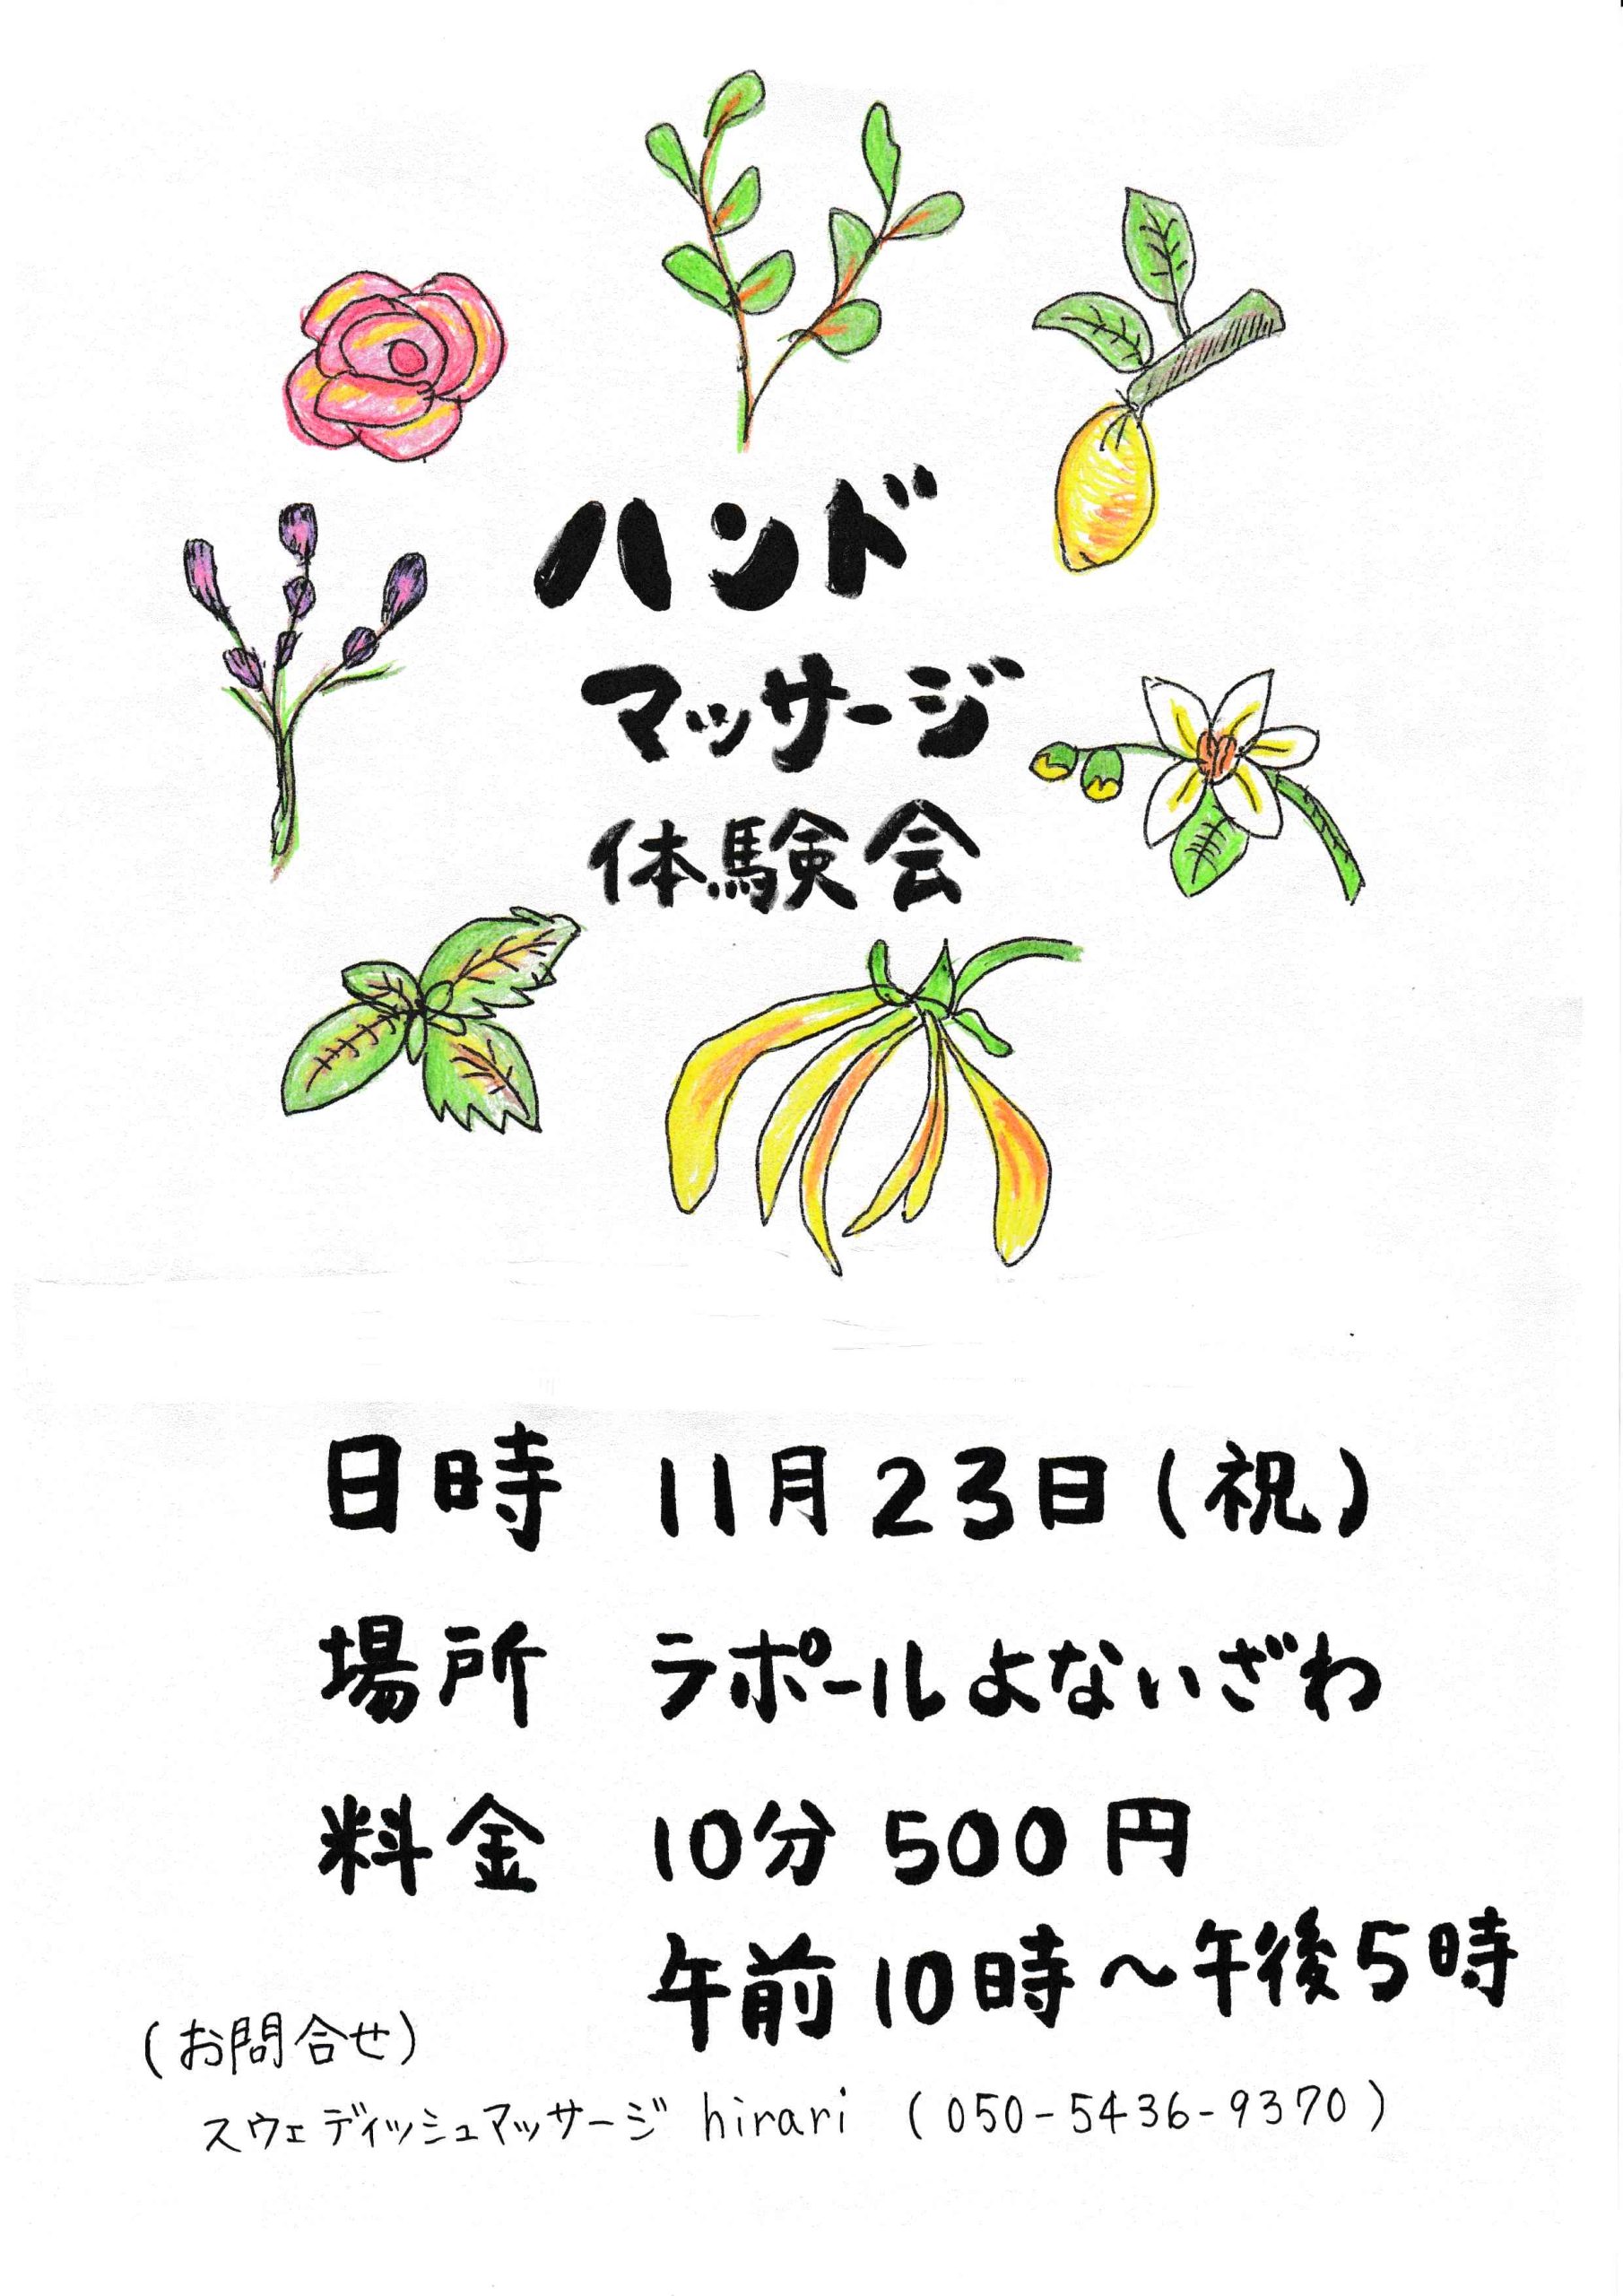 ハンド
マッサージ
体験会
日時 11月23日(祝)
場所 ラポールよないざわ
料金 10分 500円
午前10時～午後5時
(お問合せ)
スウェディッシュマッサージ hirari (050-5436-9370)